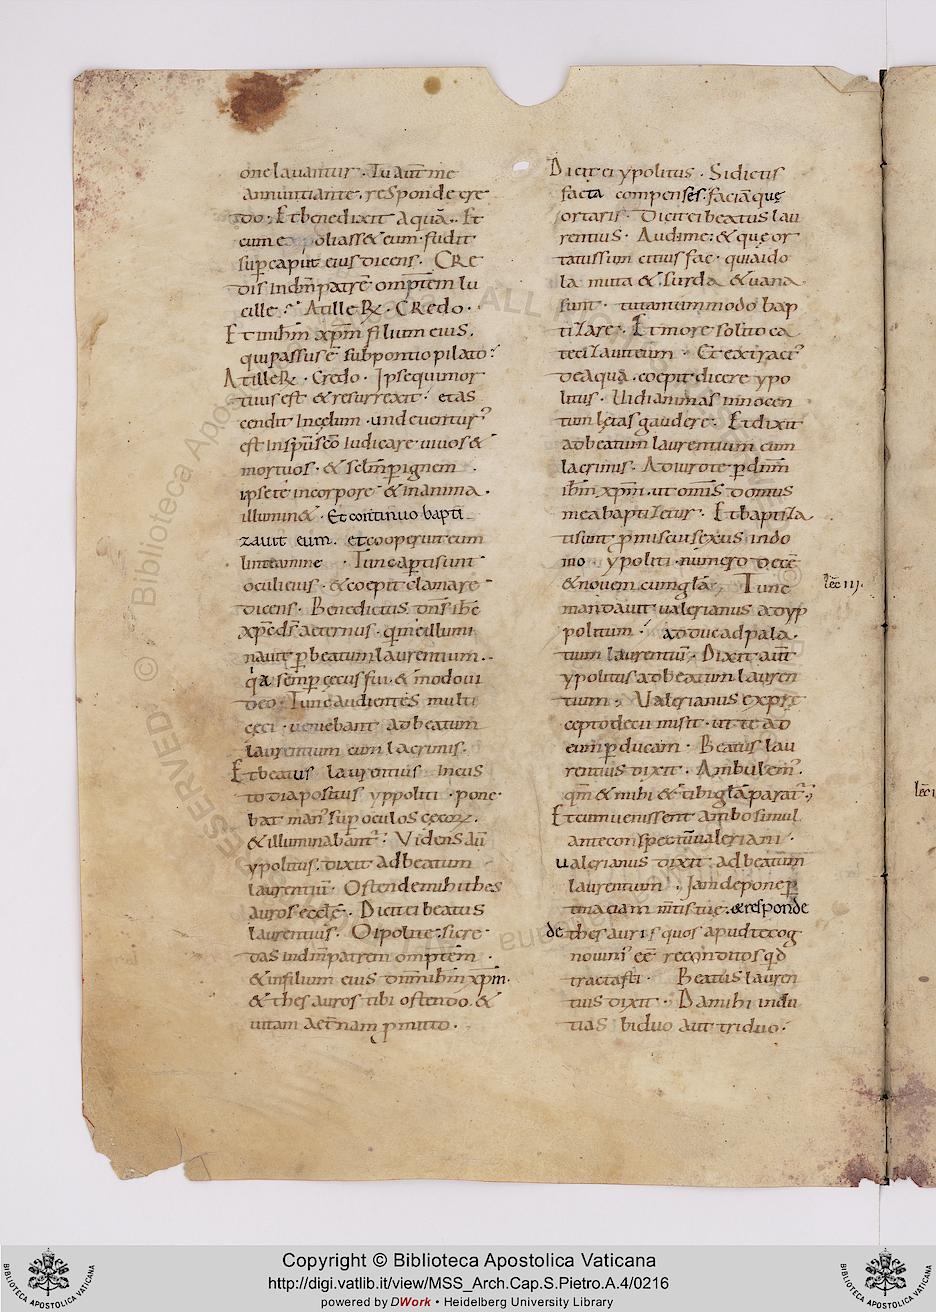 one lauantur. Tu aut̄ me
annuntiante. responde cre
do. Et benedixit aquā. Et
cum expoliass& eum. fudit
sup̄ caput eius dicens. CRe
dis indm̄ patrē omp̄tem lu
cille. Atille R̷. Credo.
Et inihm̄ xp̄m filium eius.
qui passus ē sub pontio pilato.
Atille R̷. Credo. Ipse qui mor
tuus est & resurrexit. et as
cendit In celum. unde uenturꝰ
est In sp̄u sc̄o Iudicare uiuos &
mortuos. & sc̄lm p ignem.
ipse te in corpore & in anima.
illumin&. Et continuo bapti
zauit eum. et cooperuit eum
linteamine. Tunc ap̄ti sunt
oculi eius. & coepit clamare
dicens. Benedictus dn̄s ihē
xp̄e ds̄ aeternus. qui me illumi
nauit p beatum laurentium.
qa semp̄ cecus fui. & modo ui
deo. Tunc audientes multi
ceci. ueniebant ad beatum
laurentium cum lacrimis.
Et beatus laurentius Incus
todia positus yppoliti. pone
bat manꝰ sup oculos cecorum.
& illuminabantꝰ. Videns aū
ypolitus. dixit ad beatum
laurentiū. Ostende mihi thes
auros eccl̄ę. Dicit ei beatus
laurentius. O ipolite. si cre
das indm̄ patrem omp̄tem.
& in filium eius dnm̄ ihm̄ xp̄m.
& thesauros tibi ostendo. &
uitam aet̄nam pmitto.
Dicit ei ypolitus. Si dictis
facta compenses. faciā que
ortaris. Dicit ei beatus lau
rentius. Audi me. & que or
tatus sum citius fac. quia ido
la muta & surda & uana
sunt. tu tantummodo bap
tizare. Et more solito ca
tecizauit eum. Et exiraciꝰ
de aqua. coepit dicere ypo
litus. Uidi animas innocen
tum letas gaudere. Et dixit
ad beatum laurentium cum
lacrimis. Adiuro te p dnm̄
ihm̄ xp̄m. ut omīs domus
mea baptizetur. Et baptiza
ti sunt pmiscui sexus in do
mo ypoliti. numero decē
& nouem cum glā. Tunc
mandauit ualerianus ad yp
politum. adduc ad pala
tium laurentiū. Dixit aut̄
ypolitus ad beatum lauren
tium. Valerianus ex pre
cepto decii misit. ut te ad
eum p ducam. Beatus lau
rentius dixit. Ambulemꝰ.
qm̄ & mihi & tibi glā paratꝰ.
Et cum uenissent ambo simul
ante conspectū ualeriani.
ualerianus dixit ad beatum
laurentium. Iam depone p
tinaciam mtis tuę. & responde
de thesauris quos apud te cog
nouimꝰ eē reconditos qd̄
tractasti. Beatus lauren
tius dixit. Da mihi indu
tias biduo aut triduo.
lēc iij.
lēc i
Copyright © Biblioteca Apostolica Vaticana
http://digi.vatlib.it/view/MSS_Arch.Cap.S.Pietro.A.4/0216
powered by DWork • Heidelberg University Library